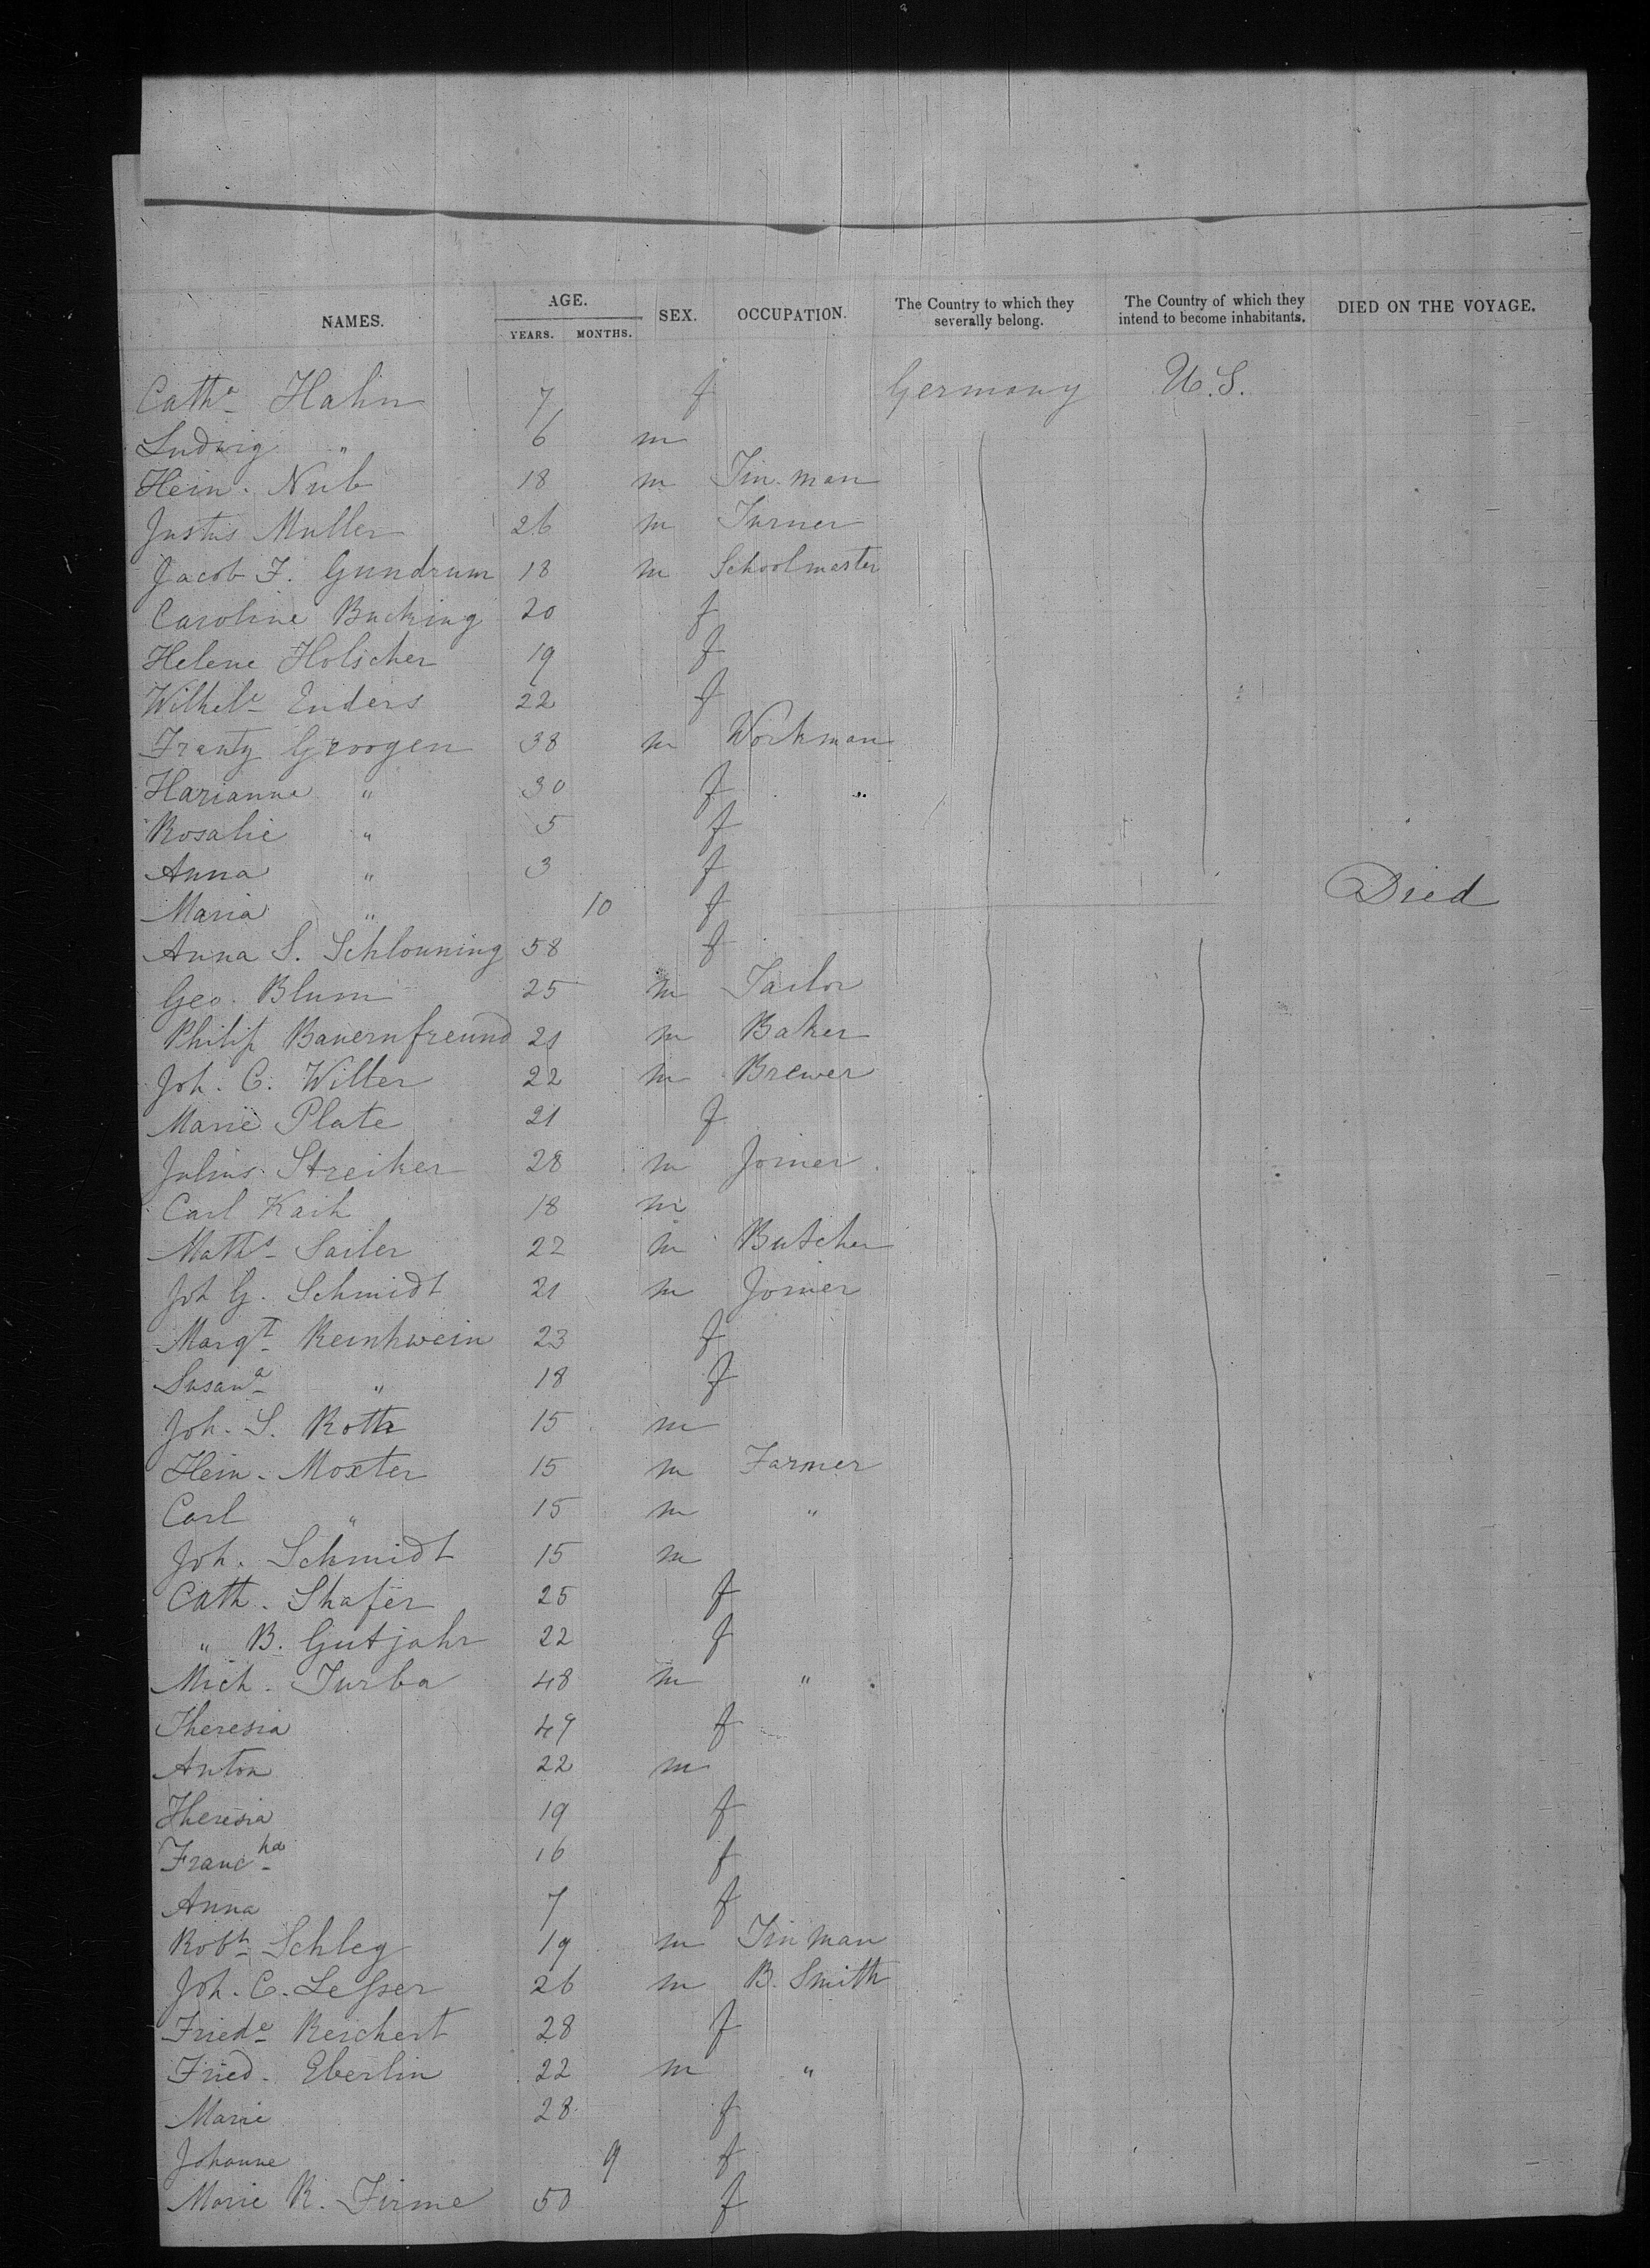 NAMES. AGE. YEARS. MONTHS. SEX. OCCUPATION. The Country to which they severally belong. The Country of which they intend to become inhabitants. DIED ON THE VOYAGE.
Cathe Hahn 7 f Germany U.S.
Ludwig " 6 m
Hein. Nub 18 m Tin man
Justus Muller 26 m Turner
Jacob F. Gundrum 18 m Schoolmaster
Caroline Bucking 20 f
Helene Holscher 19 f
Wilhele Enders 22 f
Frantz Groogen 38 m Workman
Harianne " 30 f "
Rosalie " 5 f
Anna " 3 f
Maria " 10 f Died
Anna S. Schlonning 58 f
Geo. Blum 25 m Tailor
Philip Bauernfreund 21 m Baker
Joh. C. Wilter 22 m Brewer
Marie Plate 21 f
Julius Streiker 28 m Joiner
Carl Kaih 18 m
Maths Sailer 22 m Butcher
Joh G. Schmidt 21 m Joiner
Margt Reinhwein 23 f
Susana " 18 f
Joh. S. Roth 15 m
Hein. Moxter 15 m Farmer
Carl " 15 m "
Joh. Schmidt 15 m
Cath. Shafer 25 f
" B. Gutjahr 22 f
Mich. Turba 48 m "
Theresia 49 f
Anton 22 m
Theresia 19 f
Francha 16 f
Anna 7 f
Robt Schleg 19 m Tin man
Joh. C. Lesser 26 m B. Smith
Friede Reichert 28 f
Fried. Eberlin 22 m "
Marie 28 f
Johanne 9 f
Marie R. Firme 50 f